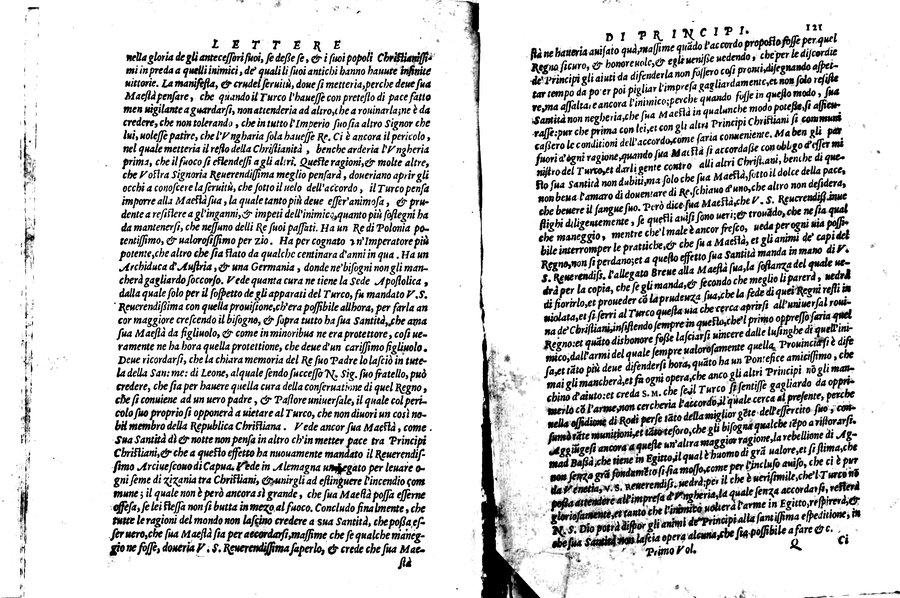 LETTERE
nella gloria de gli antecessori suoi, se deße se, & i suoi popoli Christianissi-
mi in preda a quelli inimici, de' quali li suoi antichi hanno hauute infinite
uittorie. La manifesta, & crudel seruitù, doue si metteria, perche deue sua
Maestà pensare, che quando il Turco l'hauesse con pretesto di pace fatto
men uigilante a guardarsi, non attenderia ad altro, che a rouinarla; ne è da
credere, che non tolerando, che in tutto l'Imperio suo sia altro Signor che
lui, uolesse patire, che l'Vngharia sola hauesse Re. Ci è ancora il pericolo,
nel quale metteria il resto della Christianità, benche arderia l'Vngheria
prima, che il fuoco si estendessi a gli altri. Queste ragioni, & molte altre,
che Vostra Signoria Reuerendissima meglio pensarà, doueriano aprir gli
occhi a conoscere la seruitù, che sotto il uelo dell'accordo, il Turco pensa
imporre alla Maestà sua, la quale tanto più deue esser'animosa, & pru-
dente a resistere a gl'inganni, & impeti dell'inimico, quanto più sostegni ha
da mantenersi, che nessuno delli Re suoi passati. Ha un Re di Polonia po-
tentissimo, & ualorosissimo per zio. Ha per cognato un'Imperatore più
potente, che altro che sia stato da qualche centinara d'anni in qua. Ha un
Archiduca d'Austria, & una Germania, donde ne' bisogni non gli man-
cherà gagliardo soccorso. Vede quanta cura ne tiene la Sede Apostolica,
dalla quale solo per il sospetto de gli apparati del Turco, fu mandato V. S.
Reuerendißima con quella prouisione, ch'era possibile allhora, per farla an
cor maggiore crescendo il bisogno, & sopra tutto ha sua Santità, che ama
sua Maestà da figliuolo, & come in minoribus ne era protettore, così ue-
ramente ne ha hora quella protettione, che deue d'un carissimo figliuolo.
Deue ricordarsi, che la chiara memoria del Re suo Padre lo lasciò in tute-
la della San: me: di Leone, al quale sendo successo N. Sig. suo fratello, può
credere, che sia per hauere quella cura della conseruatione di quel Regno,
che si conuiene ad un uero padre, & Pastore uniersale, il quale col peri-
colo suo proprio si opponerà a uietare al Turco, che non diuori un così no-
bil membro della Republica Christiana. Vede ancor sua Maestà, come
Sua Santità dì & notte non pensa in altro ch'in metter pace tra Principi
Christiani, & che a questo effetto ha nuouamente mandato il Reuerendis-
simo Arciuescouo di Capua. Vede in Alemagna un legato per leuare o-
gni seme di zizania tra Christiani, & unirgli ad estinguere l'incendio com
mune; il quale non è però ancora sì grande, che sua Maestà possa esserne
offesa, se lei stessa non si butta in mezo al fuoco. Concludo finalmente, che
tutte le ragioni del mondo non lascino credere a sua Santità, che possa es-
ser uero, che sua Maestà sia per accordarsi, massime che se qualche maneg-
gio ne fosse, doueria V. S. Reuerendissima saperlo, & crede che sua Mae-
stà
DI PRINCIPI. 121
stà ne haueria auisato quà, massime quãdo l'accordo proposto fosse per quel
Regno sicuro, & honoreuole, & egli ueniße uedendo, che per le discordie
de' Principi gli aiuti da difenderla non fossero così proti, disegnando aspet-
tar tempo da po er poi pigliar l'impresa gagliardamente, et non solo resiste
re, ma assalta e ancora l'inimico; perche quando fusse in questo modo, sua
Santità non negheria, che sua Maestà in qualunche modo potesse, si assicu-
rasse: pur che prima con lei, et con gli altri Principi Christiani si communi
cassero le conditioni dell'accordo, come saria conueniente. Ma ben gli par
fuori d'ogni ragione, quando sua Maestà si accordasse con obligo d'esser mi
nistro del Turco, et darli gente contro alli altri Christiani, benche di que-
sto sua Santità non dubiti, ma solo che sua Maestà, sotto il dolce della pace,
non beua l'amaro di douentare di Re, schiauo d'uno, che altro non desidera,
che beuere il sangue suo. Però dice sua Maestà, che V. S. Reuerendiss. inue
stighi diligentemente, se questi auisi sono ueri; & trouãdo, che ne sia qual
che maneggio, mentre che'l male è ancor fresco, ueda per ogni uia possi-
bile interromper le pratiche, & che sua Maestà, et gli animi de' capi del
Regno, non si perdano; et a questo effetto sua Santità manda in mano di V.
S. Reuerendiss. l'allegato Breue alla Maestà sua, la sostanza del quale ue-
drà per la copia, che se gli manda, & secondo che meglio li parerà, uedrà
di fiorirlo, et proueder cõ la prudenza sua, che la fede di quei Regni resti in
uiolata, et si serri al Turco questa uia che cerca aprirsi all'uniuersal roui-
na de' Christiani, insistendo sempre in questo, che'l primo oppresso saria quel
Regno: et quãto dishonore foße lasciarsi uincere dalle lusinghe di quell'ini-
mico, dall'armi del quale sempre ualorosamente quella Prouincia si è dife
sa, et tãto più deue difendersi hora, quãto ha un Pontefice amicissimo, che
mai gli mancherà, et fa ogni opera, che anco gli altri Principi nõ gli man-
chino d'aiuto: et creda S.M. che se il Turco si sentisse gagliardo da oppri-
merlo cõ l'arme, non cercheria l'accordo, il quale cerca al presente, perche
nella ossidione di Rodi perse tãto della miglior gẽte dell'essercito suo, con-
sumò tãte munitioni, et tãto tesoro, che gli bisogna qualche tẽpo a ristorarsi.
Aggiugesi ancora a queste un'altra maggior ragione, la rebellione di Ag-
mad Bassà, che tiene in Egitto, il qual è huomo di grã ualore, et si stima, che
non senza grã fondamẽto si sia mosso, come per l'incluso auiso, che ci è pur
da Venetia, V. S. Reuerendiss. uedrà; per il che è uerisimile, che'l Turco nõ
possa attendere all'impresa d'Vngheria, la quale senza accordarsi, resterà
gloriosamente, et tanto che l'inimico uolterà l'arme in Egitto, respirerà, &
N. S. Dio potrà dispor gli animi de' Principi alla santissima espeditione, in
che sua Santità non lascia opera alcuna, che sia possibile a fare & c.
Primo Vol. Q Ci